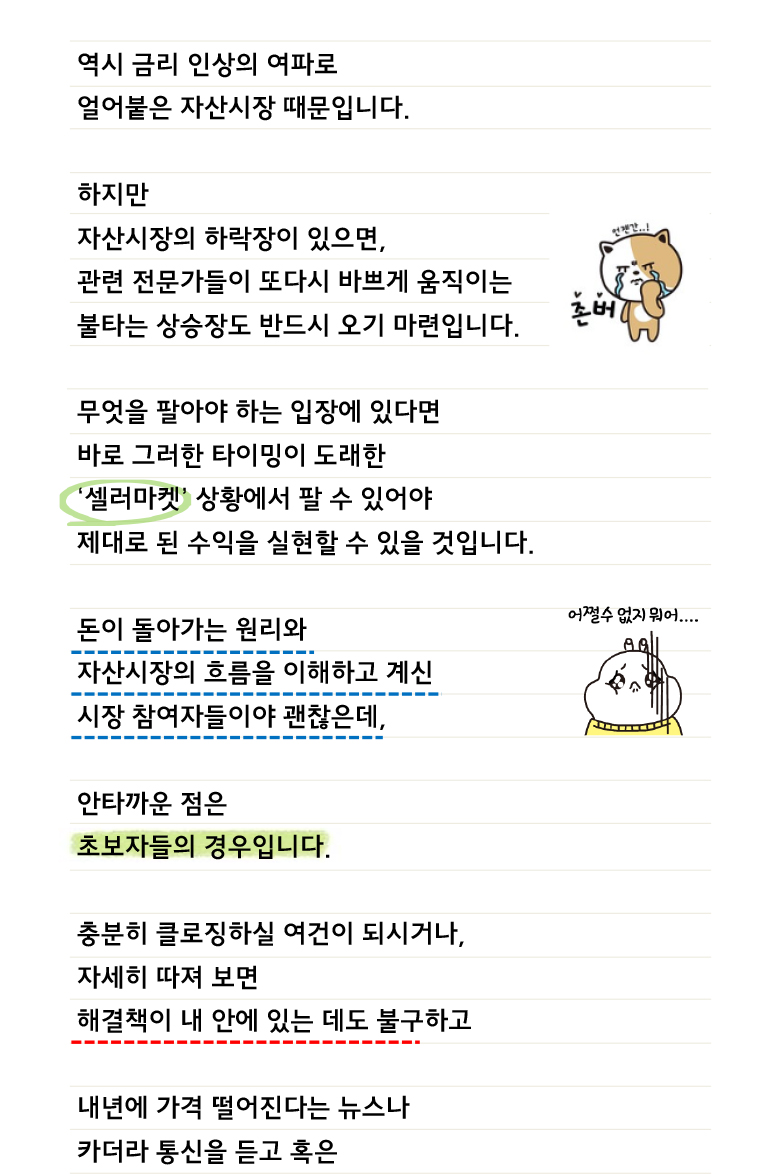 역시 금리 인상의 여파로
얼어붙은 자산시장 때문입니다.
하지만
자산시장의 하락장이 있으면,
관련 전문가들이 또다시 바쁘게 움직이는
불타는 상승장도 반드시 오기 마련입니다.
언젠간..!
존버
무엇을 팔아야 하는 입장에 있다면
바로 그러한 타이밍이 도래한
‘셀러마켓’ 상황에서 팔 수 있어야
제대로 된 수익을 실현할 수 있을 것입니다.
어쩔수 없지 뭐어....
돈이 돌아가는 원리와
자산시장의 흐름을 이해하고 계신
시장 참여자들이야 괜찮은데,
안타까운 점은
초보자들의 경우입니다.
충분히 클로징하실 여건이 되시거나,
자세히 따져 보면
해결책이 내 안에 있는 데도 불구하고
내년에 가격 떨어진다는 뉴스나
카더라 통신을 듣고 혹은